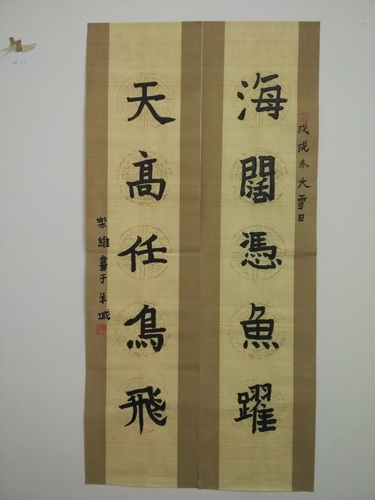 戊戌冬大雪日
海闊憑魚躍
天高任鳥飛
柴維書于羊城